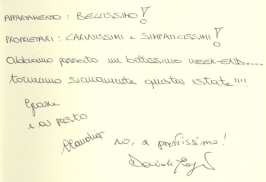 APPARTAMENTO: BELLISSIMO!
PROPRIETARI: CARINISSIMI E SIMPATICISSIMI!
Abbiamo passato un bellissimo WEEK-END....
torniamo sicuramente questa estate!!!!
Grazie
e a presto
Claudia
no, a prestissimo!